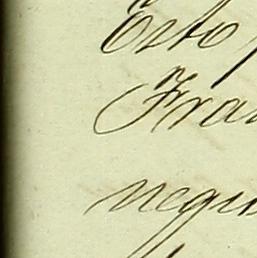 Esto
Fra
negu